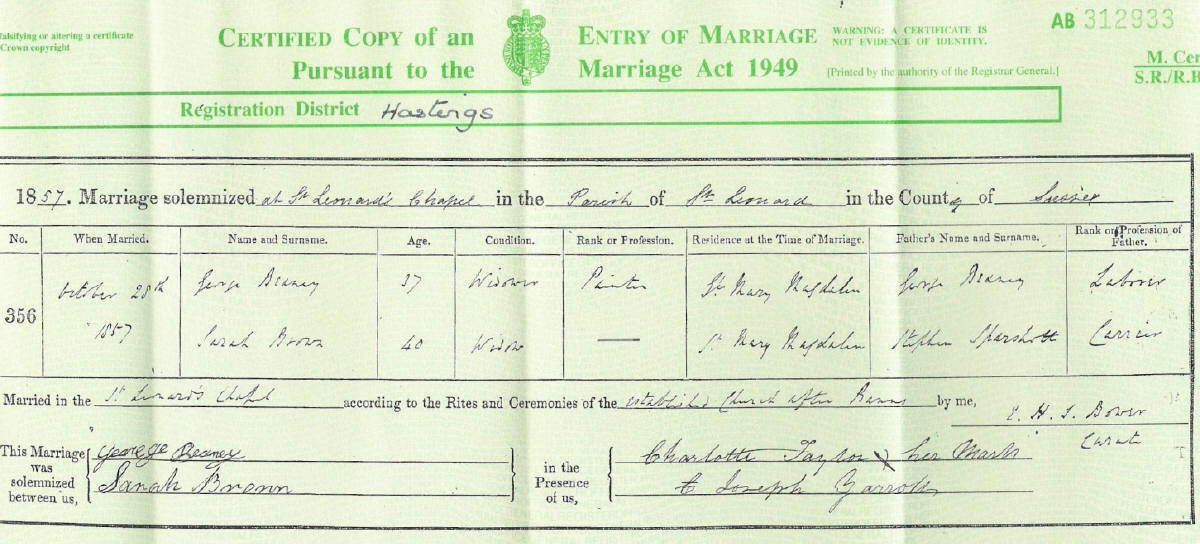 falsifying or altering a certificate
Crown copyright
CERTIFIED COPY of an ENTRY OF MARRIAGE
Pursuant to the Marriage Act 1949
WARNING: A CERTIFICATE IS
NOT EVIDENCE OF IDENTITY.
[Printed by the authority of the Registrar General.]
AB 312933
M. Cer
S.R./R.B
Registration District Hastings
1857. Marriage solemnized at St Leonard's Chapel in the Parish of St Leonard in the County of Sussex
No. When Married. Name and Surname. Age. Condition. Rank or Profession. Residence at the Time of Marriage. Father's Name and Surname. Rank or Profession of Father.
356
October 28th George Beaney 37 Widower Painter St Mary Magdalen George Beaney Laborer
1857 Sarah Brown 40 Widow — St Mary Magdalen Stephen Sparshott Carrier
Married in the St Leonard's Chapel according to the Rites and Ceremonies of the established Church after Banns by me, E. H. S. Bower
Curate
This Marriage was solemnized between us,
George Beaney
Sarah Brown
in the Presence of us,
Charlotte Taylor X her Mark
Joseph